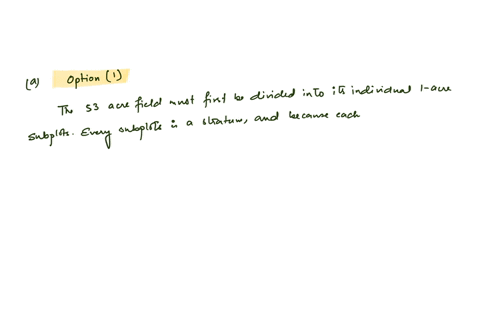 (a) Option (1)
The 53 acre field must first be divided into its individual 1-acre
subplots. Every subplots is a stratum, and because each